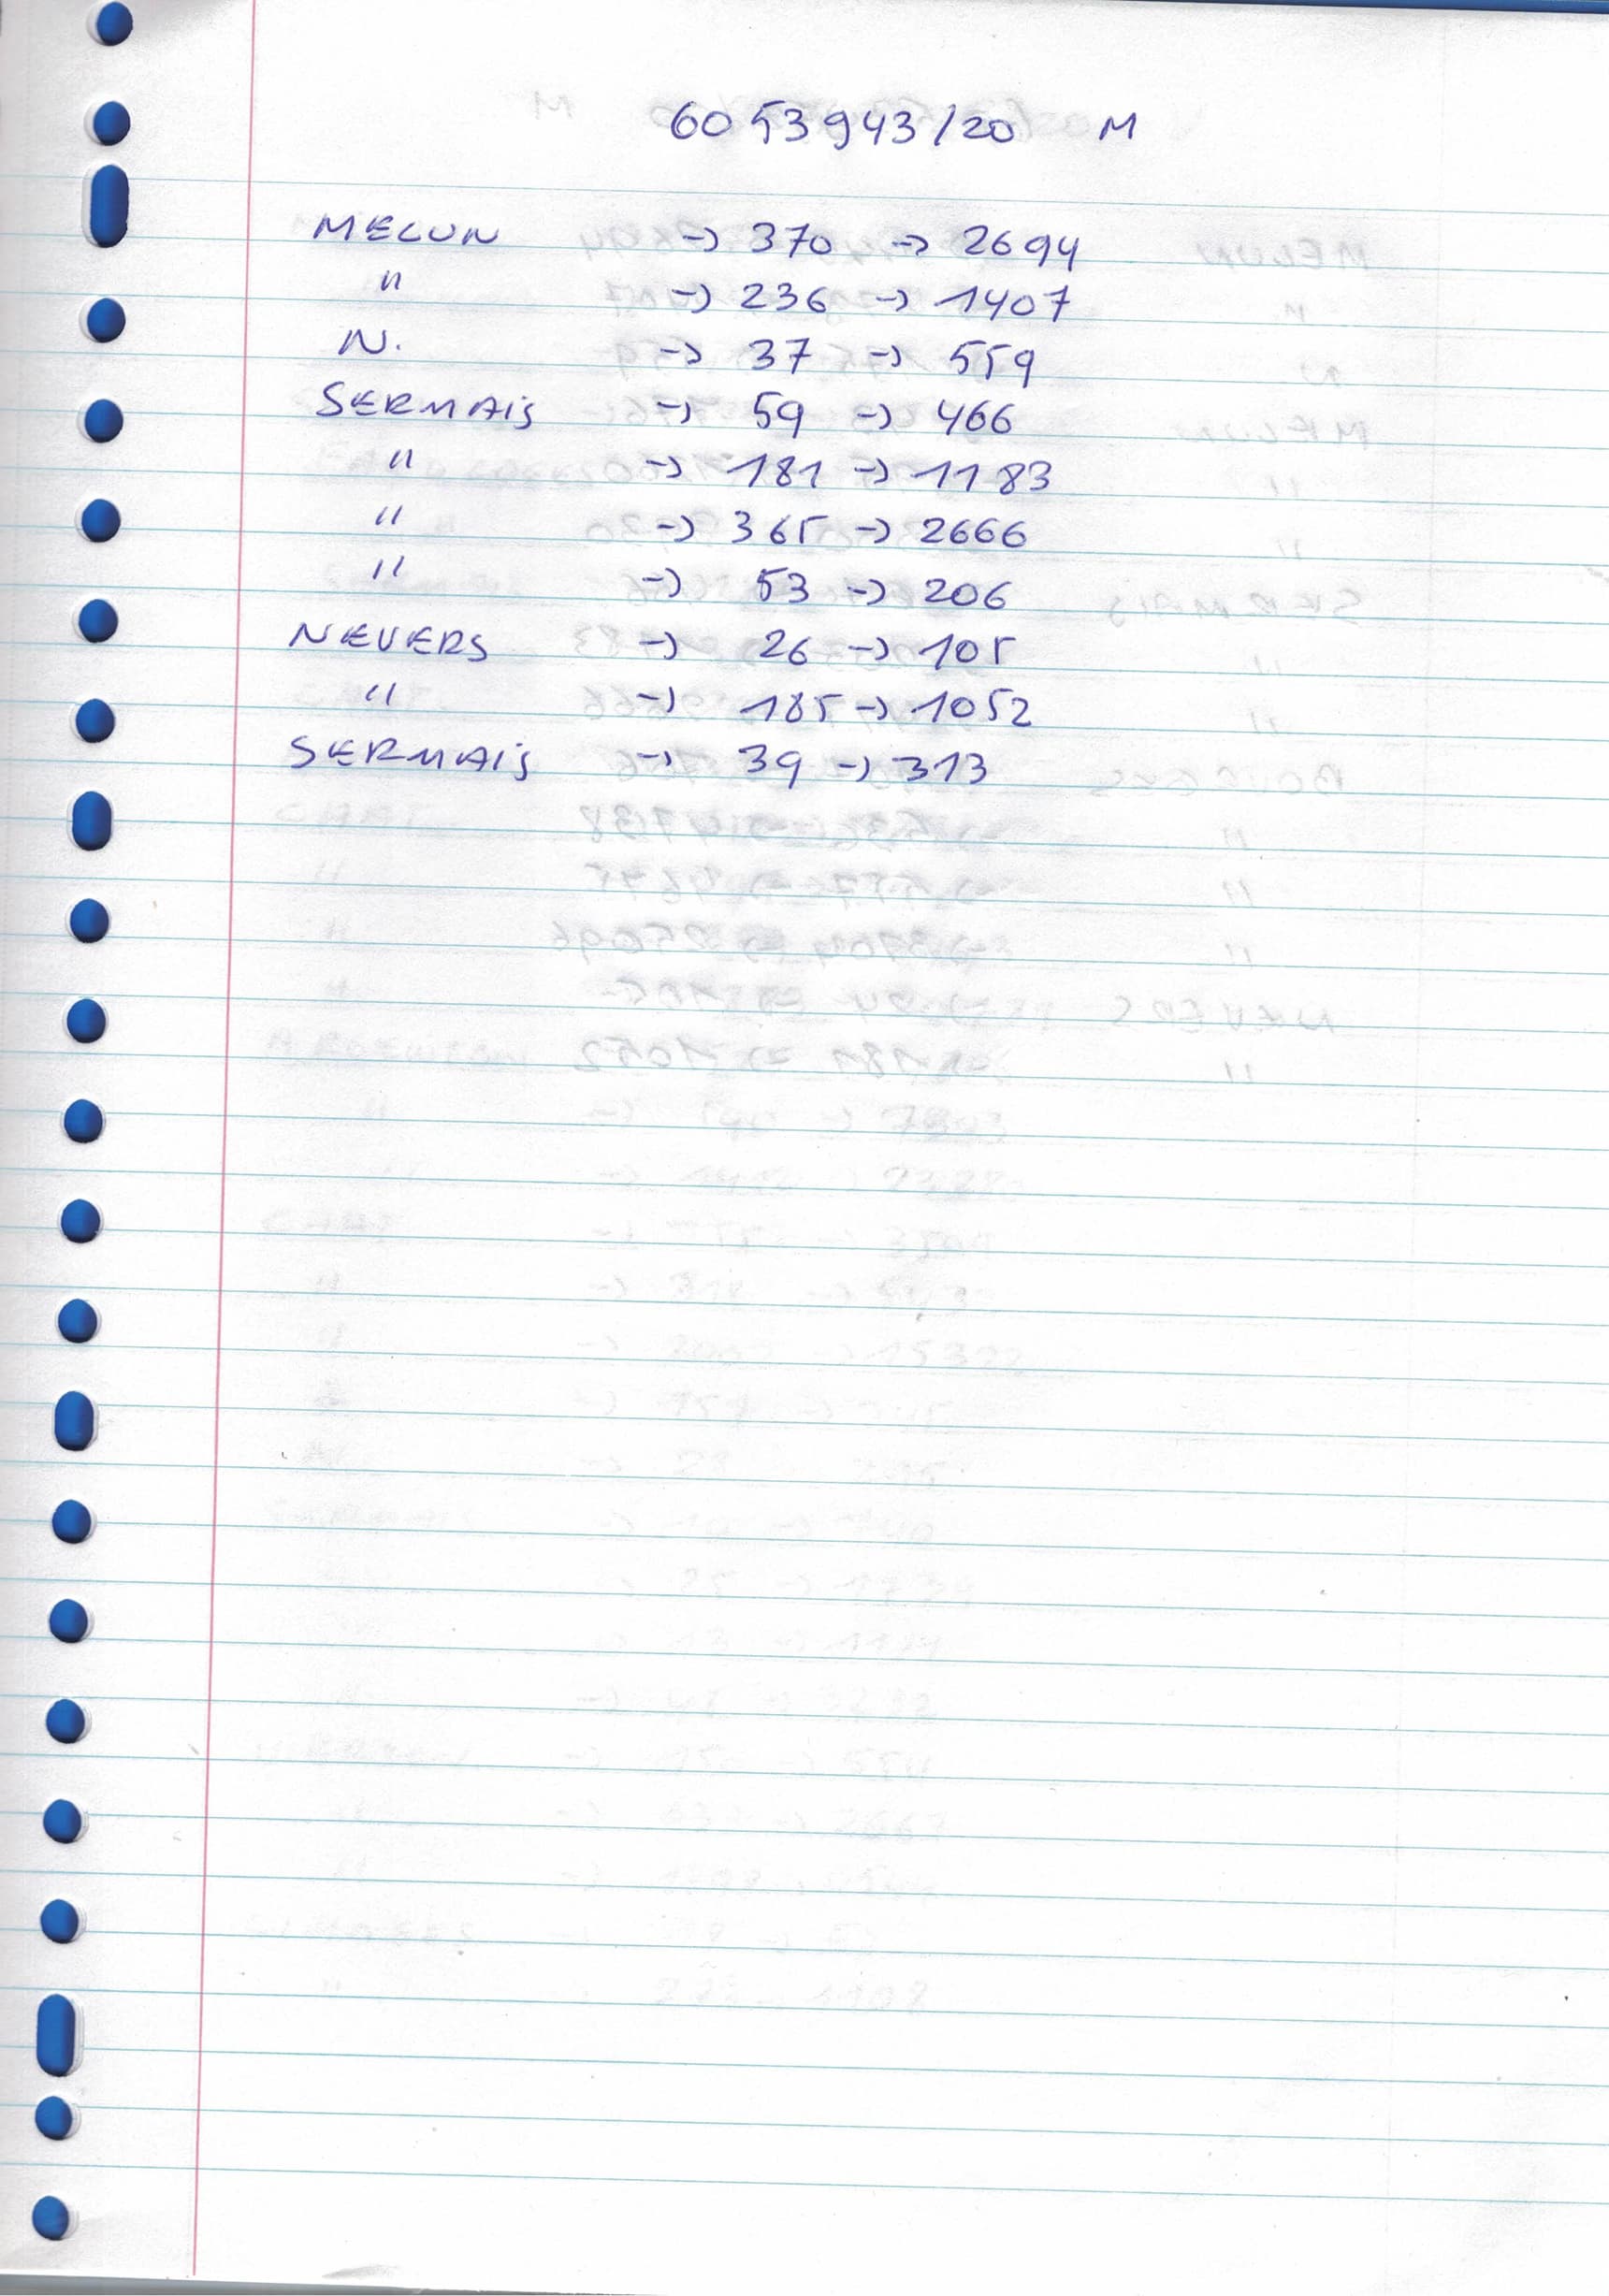 6053943/20 M
MELUN -> 370 -> 2694
" -> 236 -> 1407
N. -> 37 -> 559
SERMAiS -> 59 -> 466
" -> 181 -> 1183
" -> 365 -> 2666
" -> 53 -> 206
NEVERS -> 26 -> 105
" -> 185 -> 1052
SERMAiS -> 39 -> 313